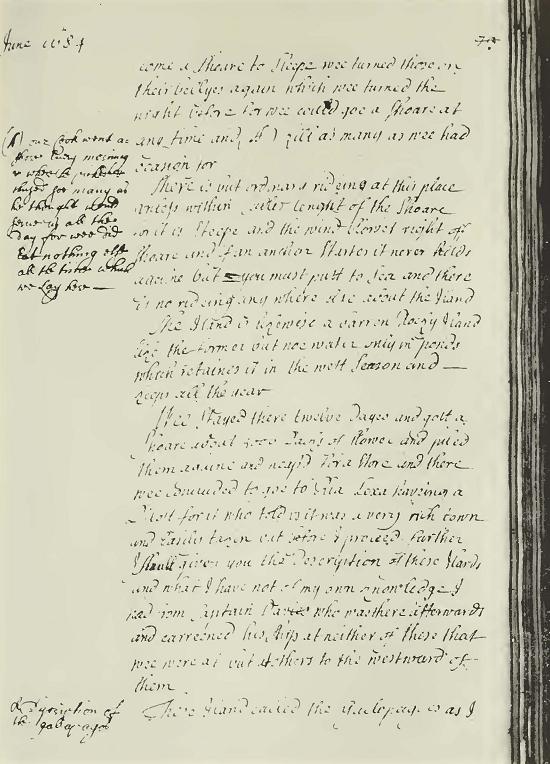 June 1684
come a Shoare to Sleepe wee turned those on
their bellyes again which wee turned the
night before for wee could goe a Shoare at
any time and (A) kill as many as wee had
ocasion for
(A) our Cook went a
shore Every morning
&
for many as
he thought would
serve us all the
day for wee did
Eat nothing else
all the time
we lay here —
There is but ordinary rideing at this place
unless within lenght of the Shoare
for it is Steepe and the wind blowes right off
Shoare and if an anchor Starts it never holds
againe but you must putt to Sea and there
is no rideing any where else about the Iland
The Iland is likewise a barren Rocky Iland
like the former but noe water only in ponds
which retaines it in the wett Season and —
keeps all the year
Wee Stayed there twelve Dayes and gott a
Shoare about of flower and piled
them againe and for a Store and there
wee concluded to goe to Ria Lexa haveing a
Pilott for it who told us it was a very rich town
and Easily taken but before I proceed further
I shall give you the Description of these Ilands
and what I have not of my own knowledge I
had from Captain Davis who was there afterwards
and carreened his ship at neither of these that
wee were at but at others to the westward of
them
a Discription of
the galapagos
These Iland called the as I